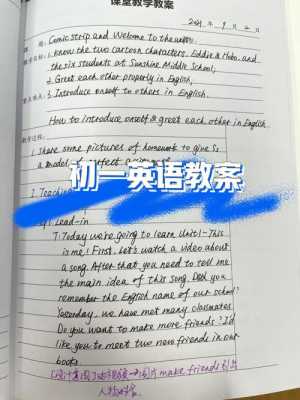 课堂教学教案
2021 年 9 月 2 日
课 Comic strip and Welcome to the unit
1. Know the two cartoon characters, Eddie & Hobo, and
the six students at Sunshine Middle School,
2. Greet each other properly in English,
3. Introduce oneself to others in English.
How to introduce oneself & greet each other in English
1. Share some pictures of homework to give Ss
a model
初一英语教案
2.
Lead-in
T: Today we're going to learn Unit 1 - This
is me! First, let's watch a video about
a song. After that you need to tell me
the main idea of this song. Do you
remember the English name of our school?
Yesterday, we have met many classmates.
Do you want to make more friends? I'd
like you to meet two new friends in our
book.
make friends